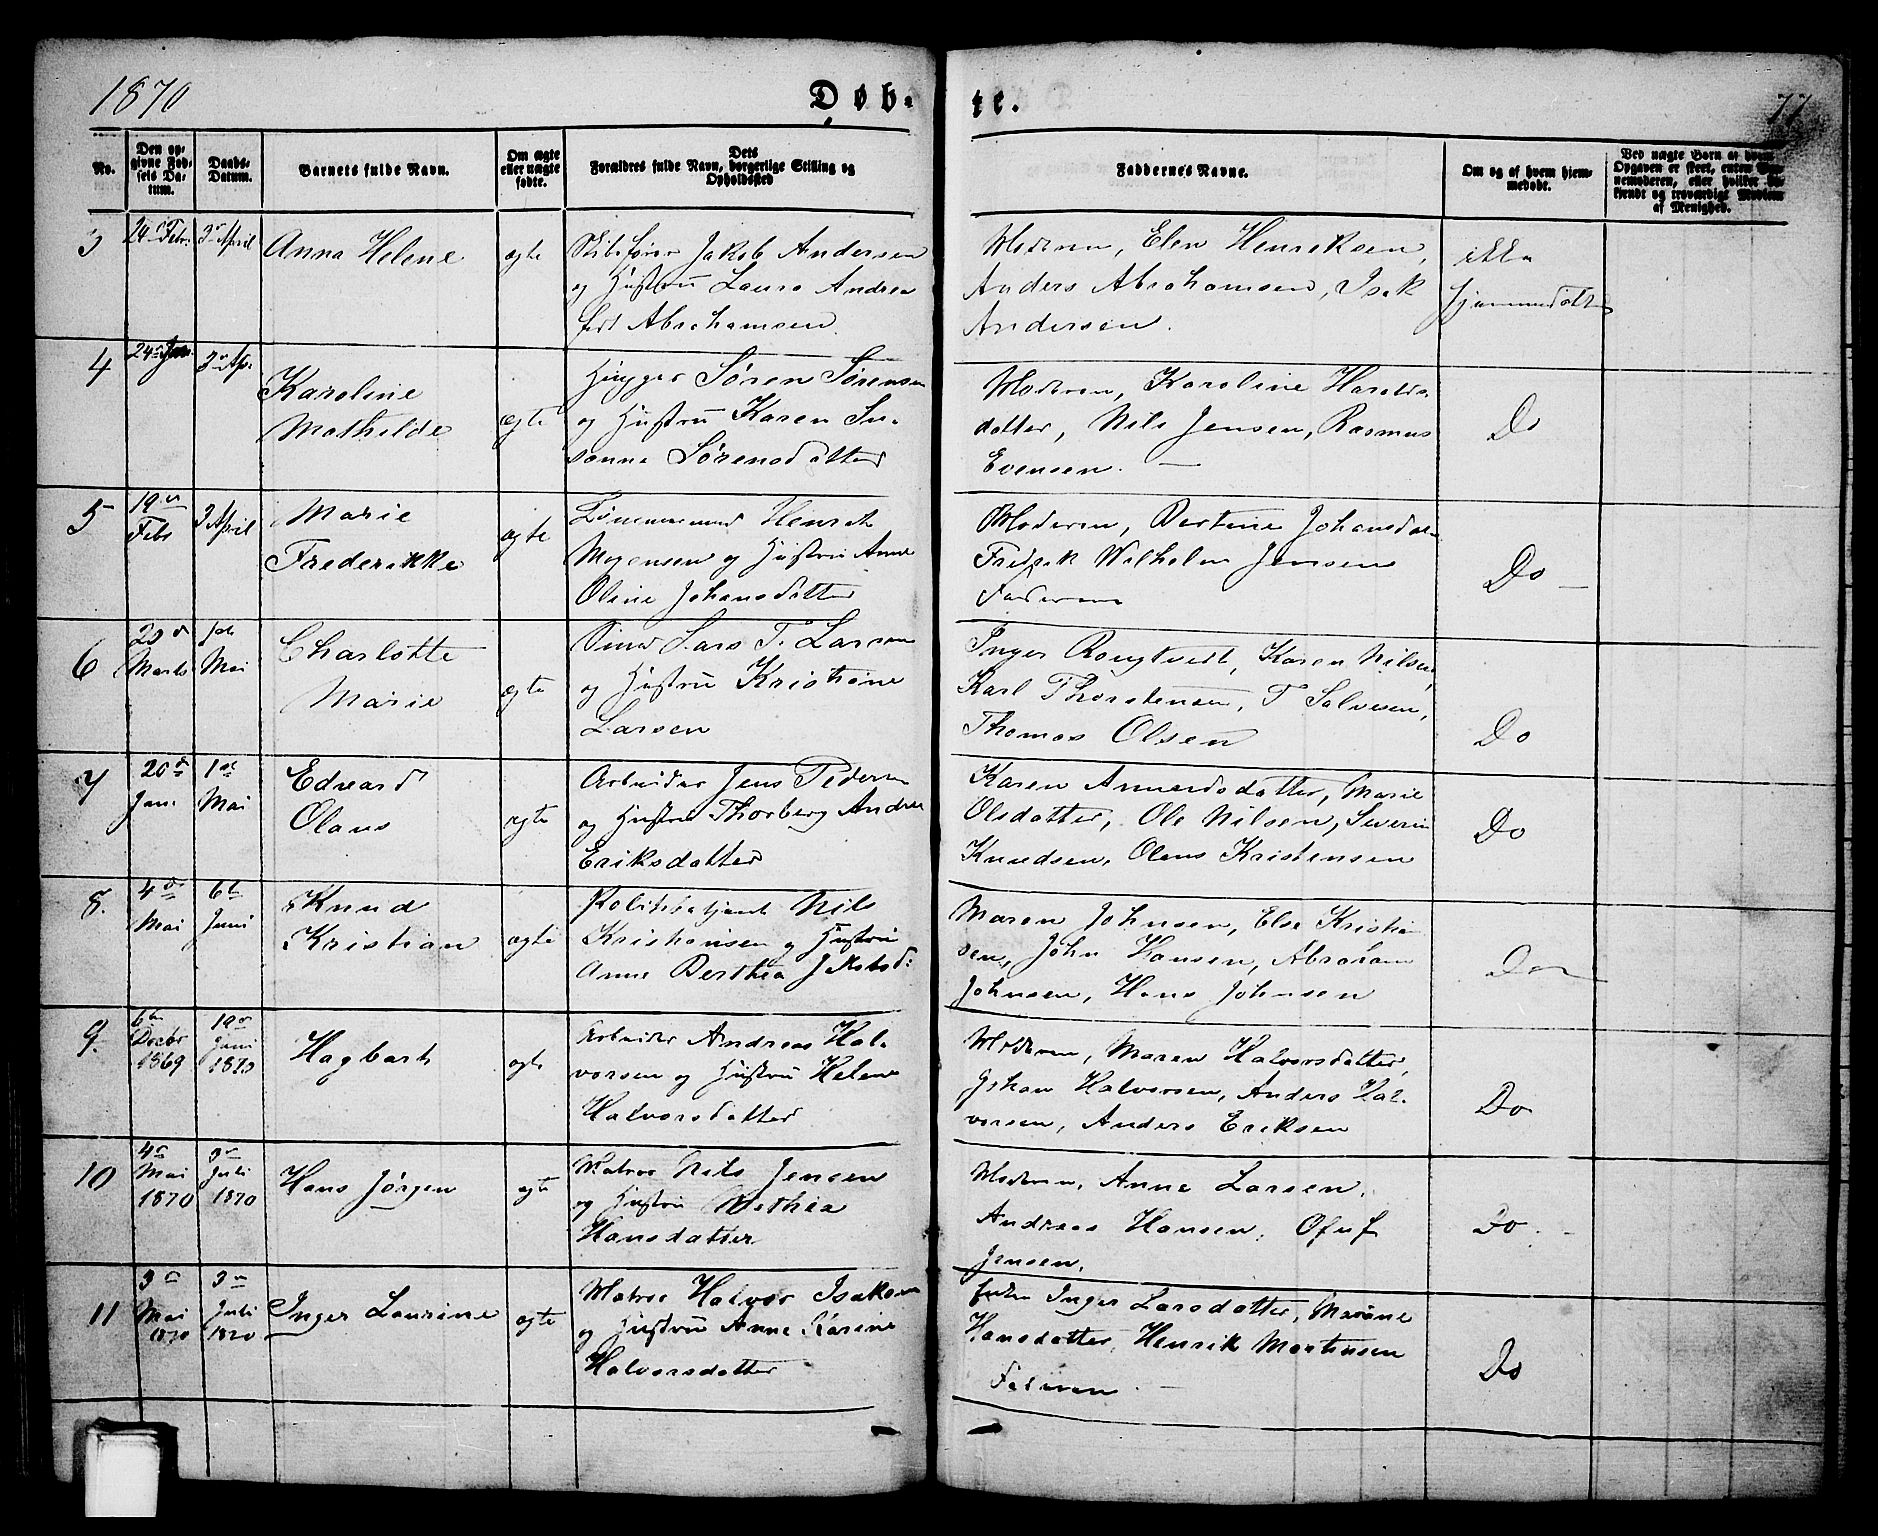 1870
Døb-
te.
77
No.
Den op-
givne Fød-
sels Da-
tum.
Daabs-
Datum.
Barnets fulde Navn.
Om ægte
eller uægte
fødte.
Dets
Forældres fulde Navn, borgerlige Stilling og
Opholdssted
Faddernes Navne.
Om og af hvem hjem-
medøbt.
Ved uægte Børn af hvem
Opgaven er skeet, enten
nemoderen, eller hvilket be-
kjendt og troværdigt Medlem
af Menighed.
3
24de Febr.
3de April
Anna Helene
ægte
Skibsfører Jakob Andersen
og Hustru Laura Andrea
født Abrahamsen.
Moderen, Elen Henriksen,
Anders Abrahamsen, Isak
Andersen.
ikke
hjemmedøbt
4
24de Jan.
3de Ap.
Karoline
Mathilde
ægte
Søren Sørensen
og Hustru Karen Su-
sanne Sørensdatter
Moderen, Karoline Haralds-
datter, Nils Jensen, Rasmus
Evensen. —
Do
5
19de
Feb
3 April
Marie
Frederikke
ægte
Henrik
Mogensen og Hustru Anne
Oline Johansdatter
Moderen, Bertine Johansdatr
Fredrik Wilhelm Jensen
Faderen
Do —
6
20de
Marts
1ste
Mai
Charlotte
Marie
ægte
Lars T. Larsen
og Hustru Kristiane
Larsen
Inger Rougtvedt, Karen Nilsen,
Karl Thorstensen, T Salvesen,
Thomas Olsen
Do
7
20de
Jan.
1ste
Mai
Edvard
Olaus
ægte
Arbeider Jens Pedersen
og Hustru Thorberg Andrea
Eriksdatter
Karen Amundsdatter, Marie
Olsdatter, Ole Nilsen, Severin
Knudsen, Olaus Kristensen
Do
8.
4de
Mai
6te
Juni
Knud
Kristian
ægte
Politibetjent Nils
Kristiansen og Hustru
Anne Berthea Jakobsd:
Maren Johnsen, Else Kristian
sen, John Hansen, Abraham
Johnsen, Hans Johnsen
Do
9.
6te
Decbr
1869
19de
Juni
1870
Hagbart
ægte
Arbeider Andreas Hal-
vorsen og Hustru Helene
Halvorsdatter
Moderen, Maren Halvorsdatter,
Johan Halvorsen, Anders Hal-
vorsen, Anders Eriksen
Do
10
4de
Mai
1870
3de
Juli
1870
Hans Jørgen
ægte
Matros Nils Jensen
og Hustru Mathea
Hansdatter
Moderen, Anne Larsen,
Andreas Hansen,
Jensen.
Do. —
11
3de
Mai
1870
3de
Juli
1870
Inger Laurine
ægte
Matros Halvor Isaksen
og Hustru Anne Karine
Halvorsdatter
Inger Larsdatter,
Hansdatter, Henrik Mortensen
Faderen —
Do